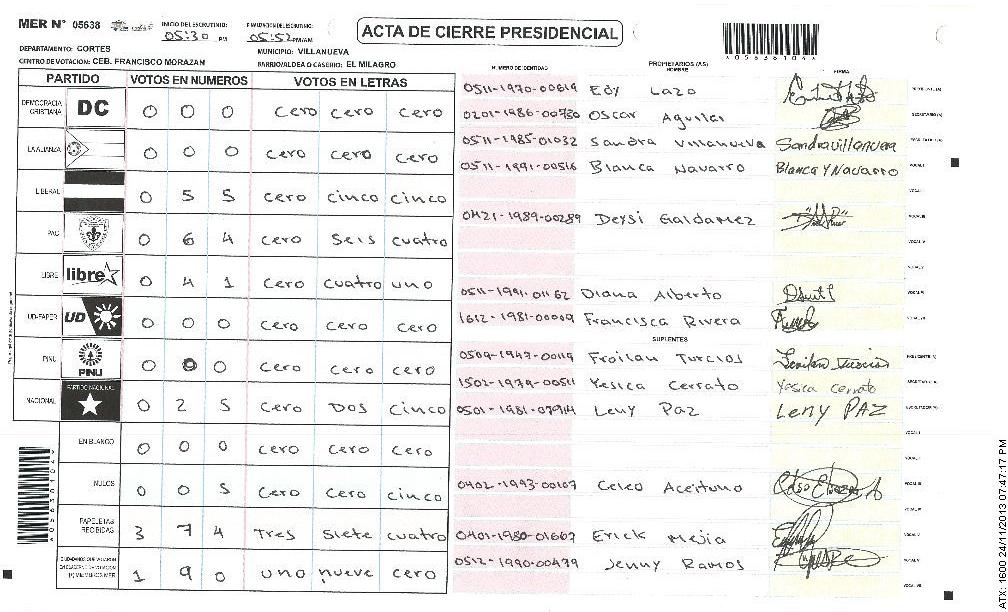 MER N° 05638
INICIO DEL ESCRUTINIO: 05:30 PM
FINALIZACION DEL ESCRUTINIO: 05:52 PM/AM
ACTA DE CIERRE PRESIDENCIAL
*05638104*
DEPARTAMENTO: CORTES
MUNICIPIO: VILLANUEVA
CENTRO DE VOTACION: CEB. FRANCISCO MORAZAN
BARRIO/ALDEA O CASERIO: EL MILAGRO
PARTIDO VOTOS EN NUMEROS VOTOS EN LETRAS
NUMERO DE IDENTIDAD PROPIETARIOS (AS) NOMBRE FIRMA
DEMOCRACIA CRISTIANA DC 0 0 0 cero cero cero
LA ALIANZA 0 0 0 cero cero cero
LIBERAL 0 5 5 cero cinco cinco
PAC 0 6 4 cero seis cuatro
LIBRE libre 0 4 1 cero cuatro uno
UD-FAPER UD 0 0 0 cero cero cero
PINU PINU 0 0 0 cero cero cero
NACIONAL PARTIDO NACIONAL 0 2 5 cero Dos cinco
EN BLANCO 0 0 0 cero cero cero
NULOS 0 0 5 cero cero cinco
PAPELETAS RECIBIDAS 3 7 4 Tres siete cuatro
1 9 0 uno nueve cero
0511-1970-00619 Edy Lazo
0201-1986-00750 Oscar Aguilar
0511-1985-01032 Sandra Villanueva Sandra Villanueva
0511-1991-00516 Blanca Navarro Blanca Y Navarro
0421-1989-00289 Deysi Galdamez
0511-1991-01162 Diana Alberto
1612-1981-00009 Francisca Rivera
SUPLENTES
0509-1947-00119 Froilan Turcios Froilan Turcios
1502-1979-00511 Yesica Cerrato Yesica Cerrato
0501-1981-07914 Leny Paz LENY PAZ
0402-1993-00107 Celeo Aceituno
0401-1980-01667 Erick Mejia
0512-1990-00479 Jenny Ramos
ATX: 1600 24/11/2013 07:47:17 PM